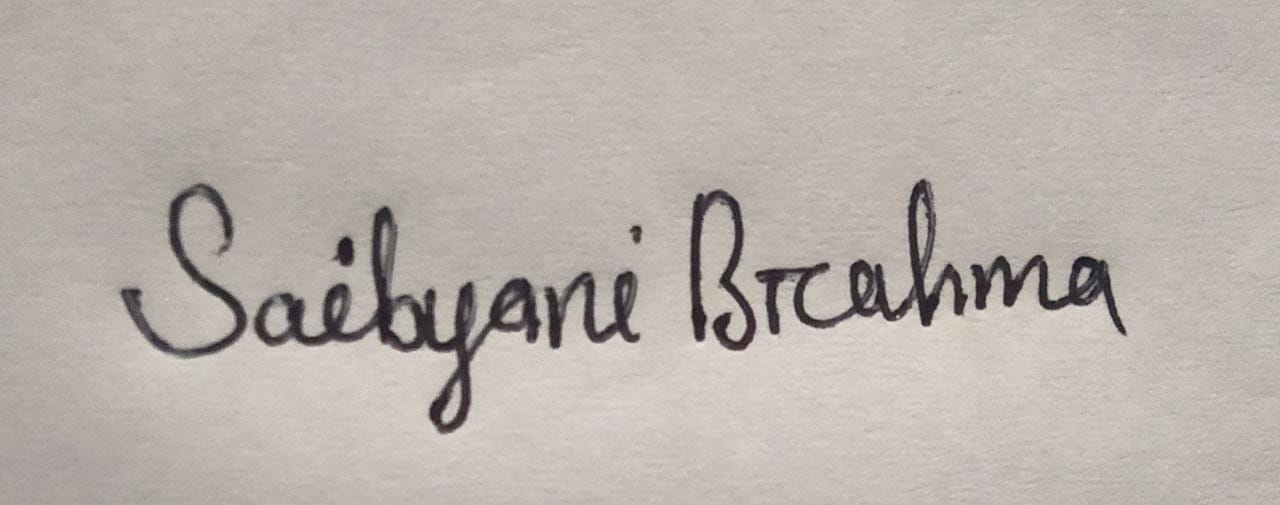 Saibyani Brahma